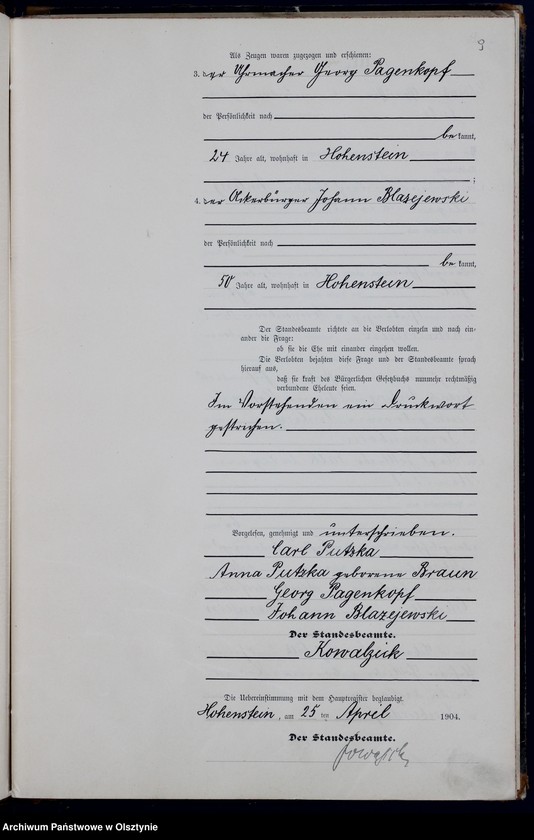 9
Als Zeugen waren zugezogen und erschienen:
3. der Uhrmacher Georg Pagenkopf
der Persönlichkeit nach
be kannt,
24 Jahre alt, wohnhaft in Hohenstein
;
4. der Ackerbürger Johann Blazejewski
der Persönlichkeit nach
be kannt,
50 Jahre alt, wohnhaft in Hohenstein
Der Standesbeamte richtete an die Verlobten einzeln und nach ein-
ander die Frage:
ob sie die Ehe mit einander eingehen wollen.
Die Verlobten bejahten diese Frage und der Standesbeamte sprach
hierauf aus,
daß sie kraft des Bürgerlichen Gesetzbuchs nunmehr rechtmäßig
verbundene Eheleute seien.
Im Vorstehenden ein Druckwort
gestrichen.
Vorgelesen, genehmigt und unterschrieben.
Carl Putzka
Anna Putzka geborene Braun
Georg Pagenkopf
Johann Blazejewski
Der Standesbeamte.
Kowalzick
Die Uebereinstimmung mit dem Hauptregister beglaubigt.
Hohenstein, am 25 ten April 1904.
Der Standesbeamte.
Archiwum Państwowe w Olsztynie